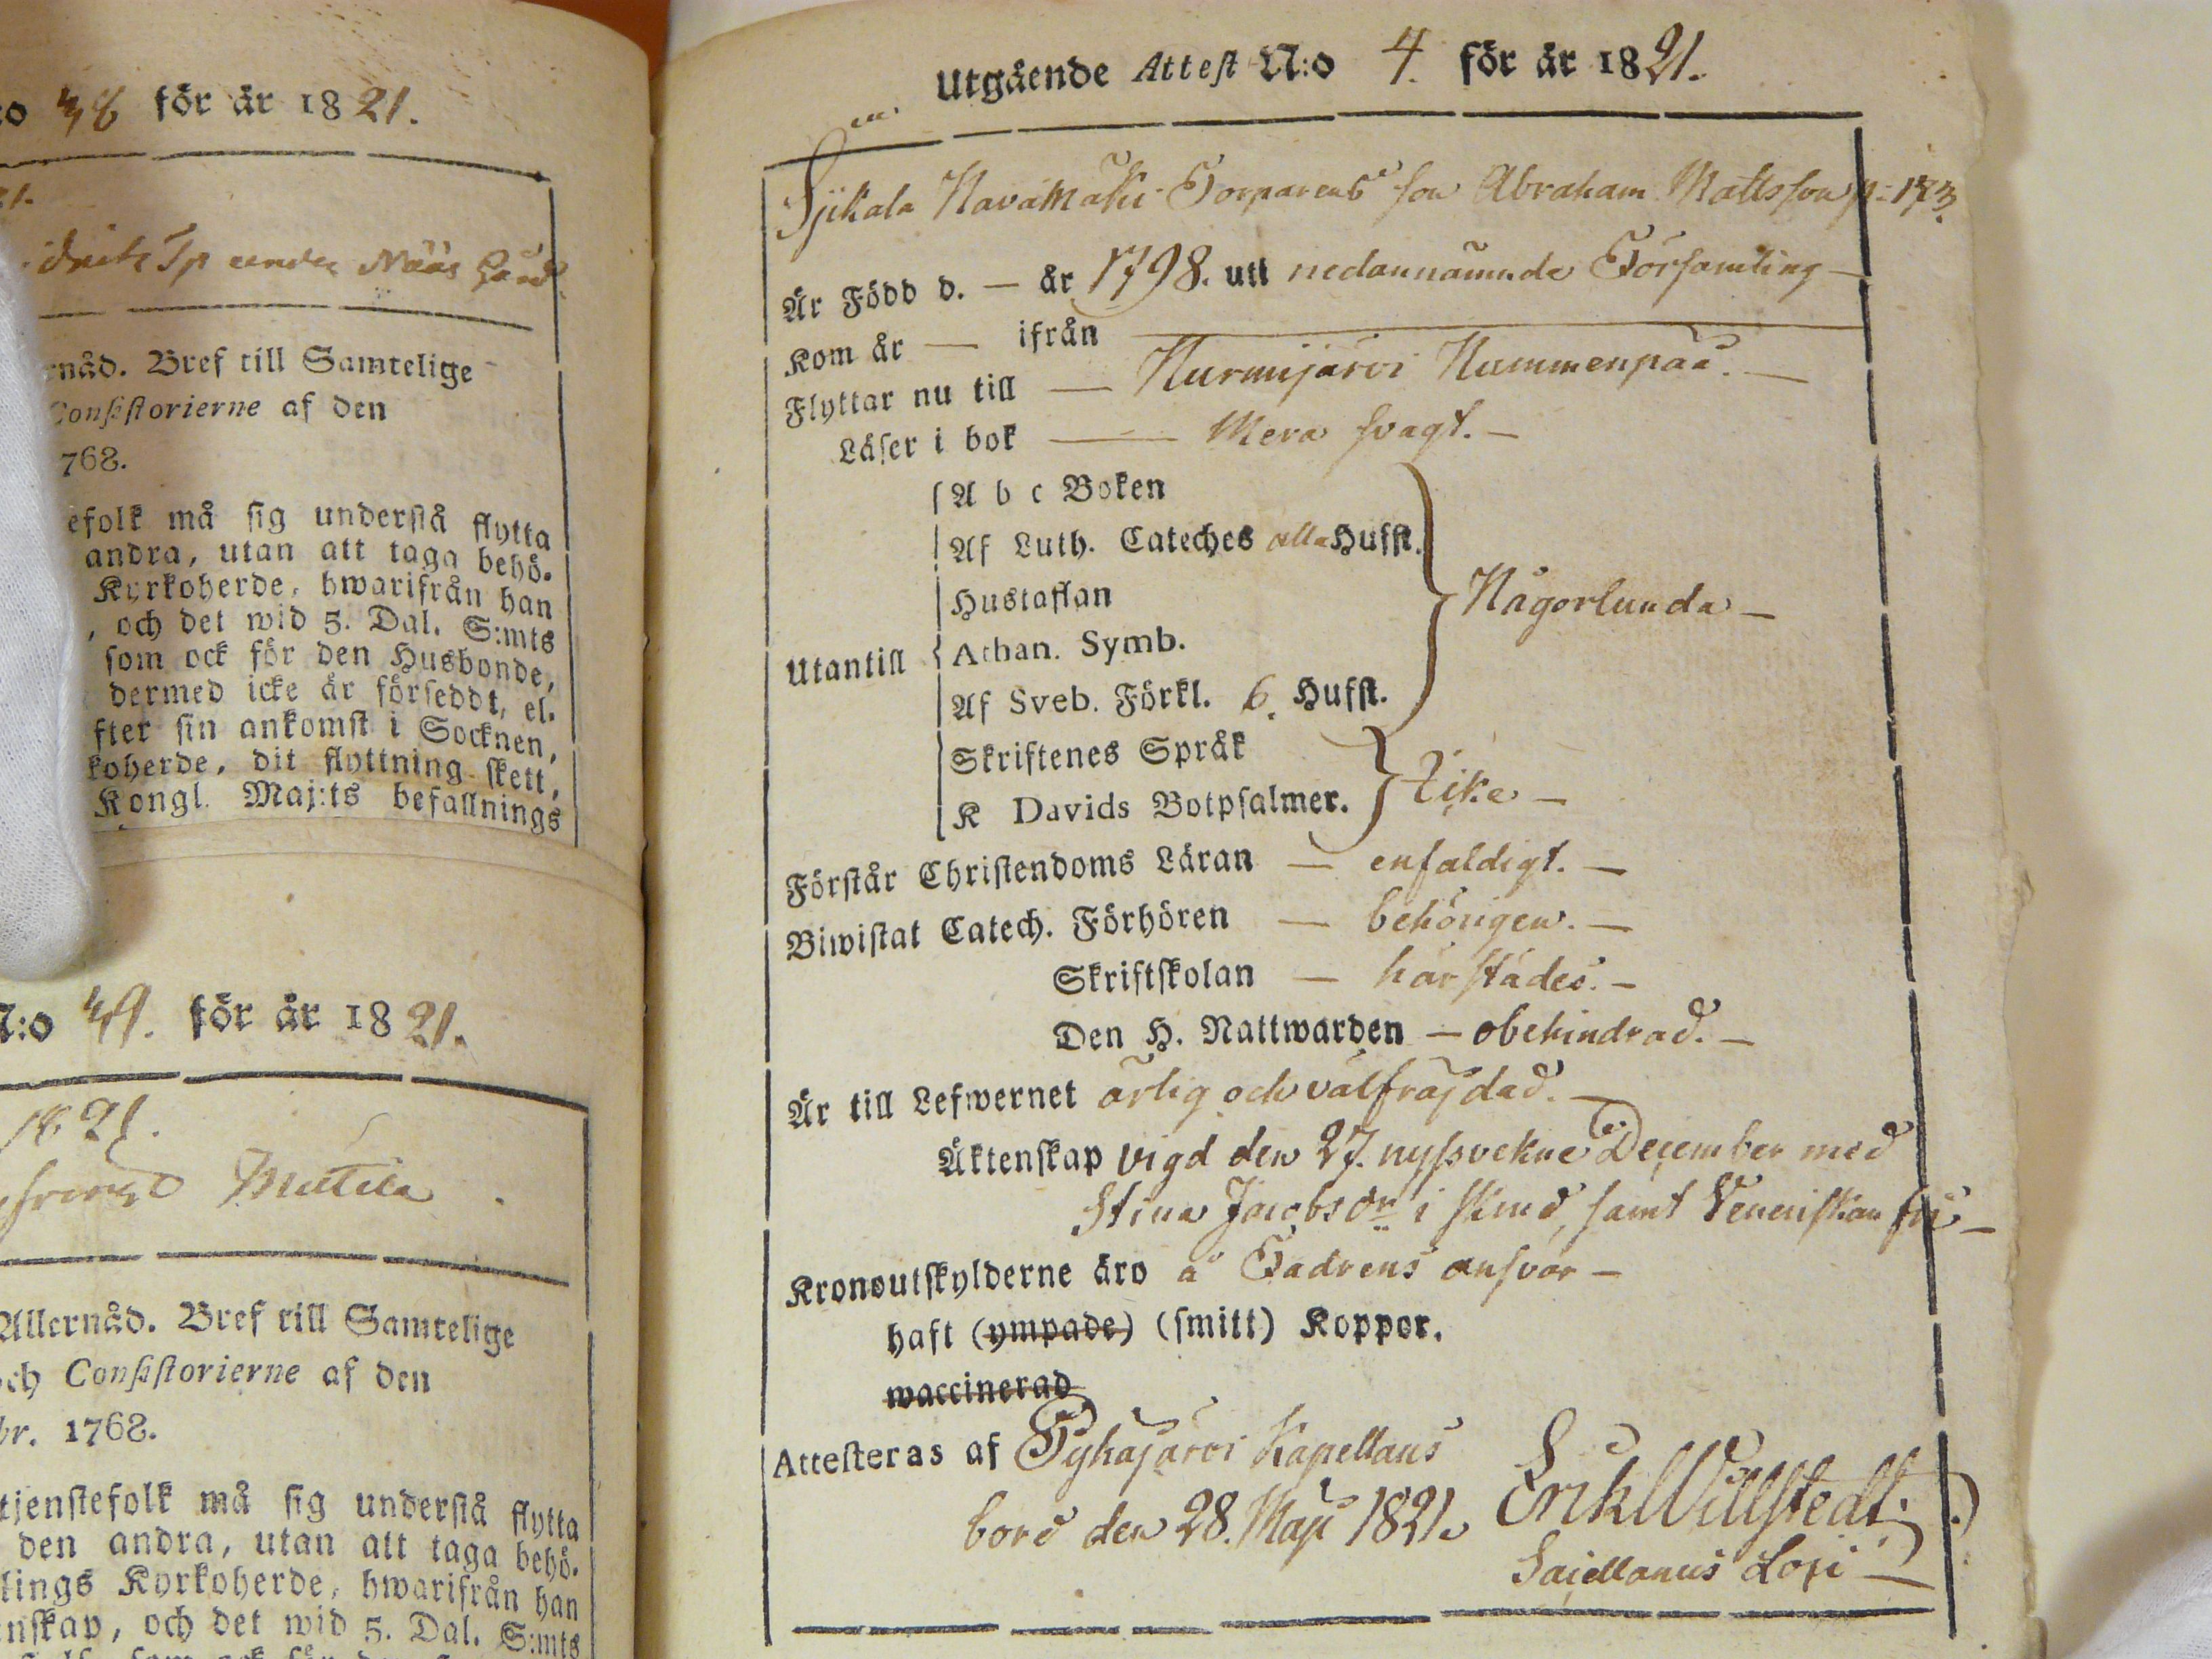 :o 48 för år 1821.
21.
Tp under Nääs Gård
rnåd. Bref till Samtelige
Consistorierne af den
768.
efolk må sig understå flytta
andra, utan att taga behö-
Kyrkoherde, hwarifrån han
, och det wid 5. Dal. S:mts
som ock för den Husbonde,
dermed icke är försedt, el-
fter sin ankomst i Socknen,
koherde, dit flyttning skett,
Kongl. Maj:ts befallnings
N:o 49. för år 1821.
1821.
Allernåd. Bref till Samtelige
och Consistorierne af den
br. 1768.
tjenstefolk må sig understå flytta
den andra, utan att taga behö-
lings Kyrkoherde, hwarifrån han
nskap, och det wid 5. Dal. S:mts
Utgående Attest N:o 4. för år 1821.
Havamäki Torparens son Abraham Mattsson p: 173
Är Född d. — år 1798. uti nedannämnde Församling —
Kom år — ifrån
Flyttar nu till — Nurmijärvi Nummenpää. —
Läser i bok — Mera svagt. —
A b c Boken
Af Luth. Cateches alla Hufst.
Hustaflan
Någorlunda —
Utantill Athan. Symb.
Af Sveb. Förkl. 6. Hufst.
Skriftenes Språk
Icke —
K Davids Botpsalmer.
Förstår Christendoms Läran — enfaldigt. —
Biwistat Catech. Förhören — behörigen. —
Skriftskolan — härstädes. —
Den H. Nattwarden — obehindrad. —
Är till Lefwernet ärlig och välfräjdad. —
Äktenskap vigd den 27. nyssvekne December med
Stina Jacobsdr i samt Veneriskan fri —
Kronoutskylderne äro å Fadrens ansvar —
haft (ympade) (smitt) Koppor.
waccinerad
Attesteras af Pyhäjärvi Kapellans
bord den 28. Maji 1821. Erik Willstedt.
Sacellanus Loci —